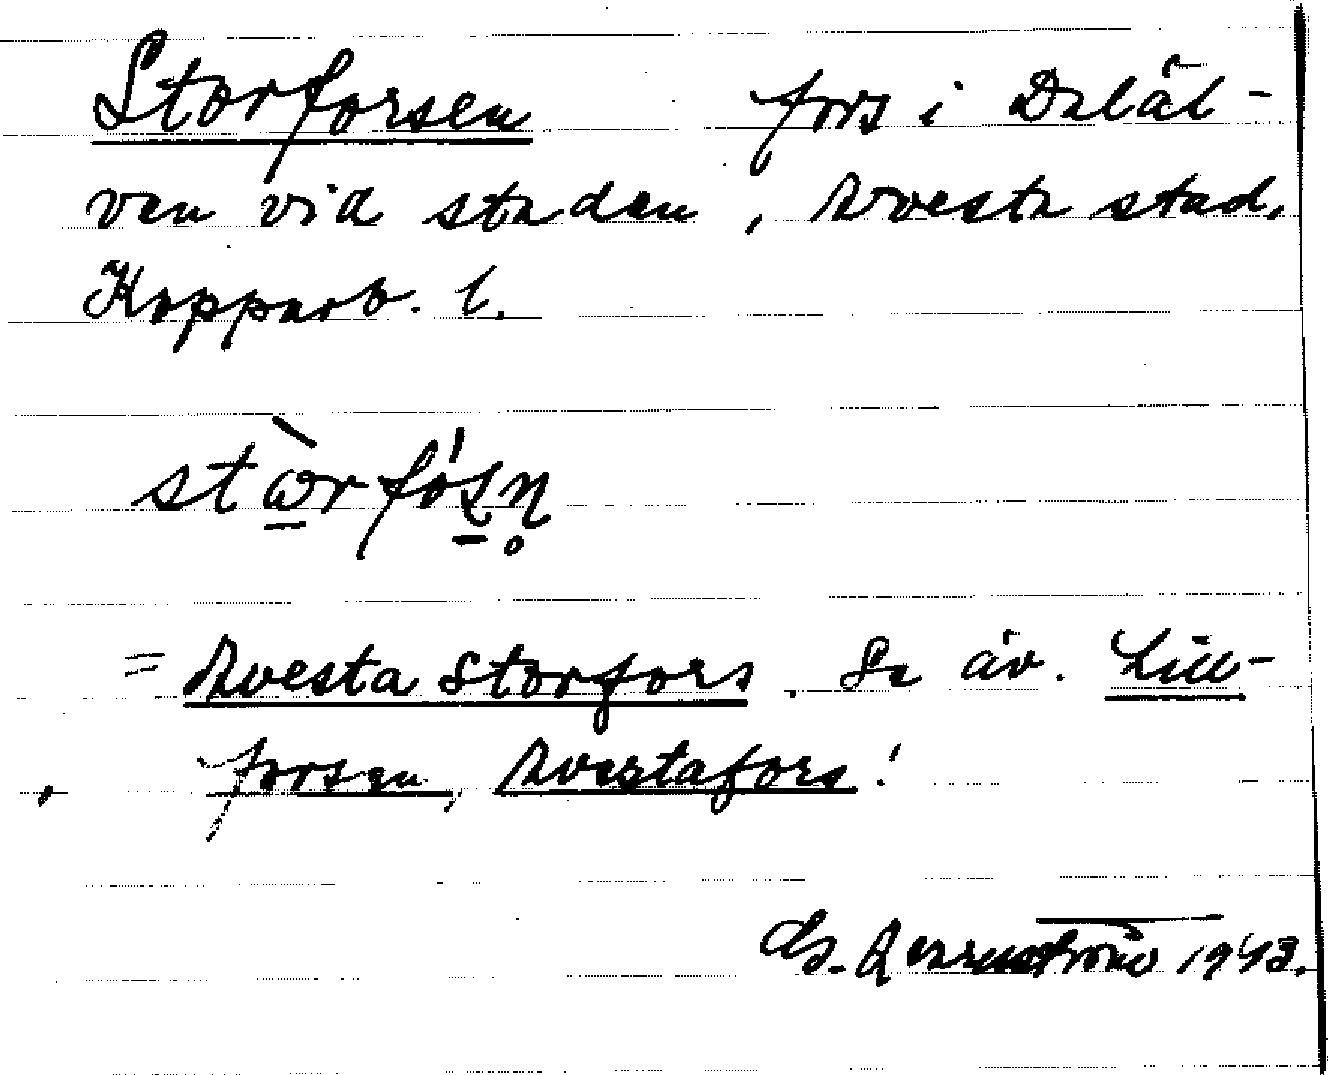 Storforsen fors i Daläl-
ven vid staden, Avesta stad,
Kopparb. l.
stὼrfóʂn̥
= Avesta Storfors. Se äv. Lill-
forsen, Avestafors!
1943.